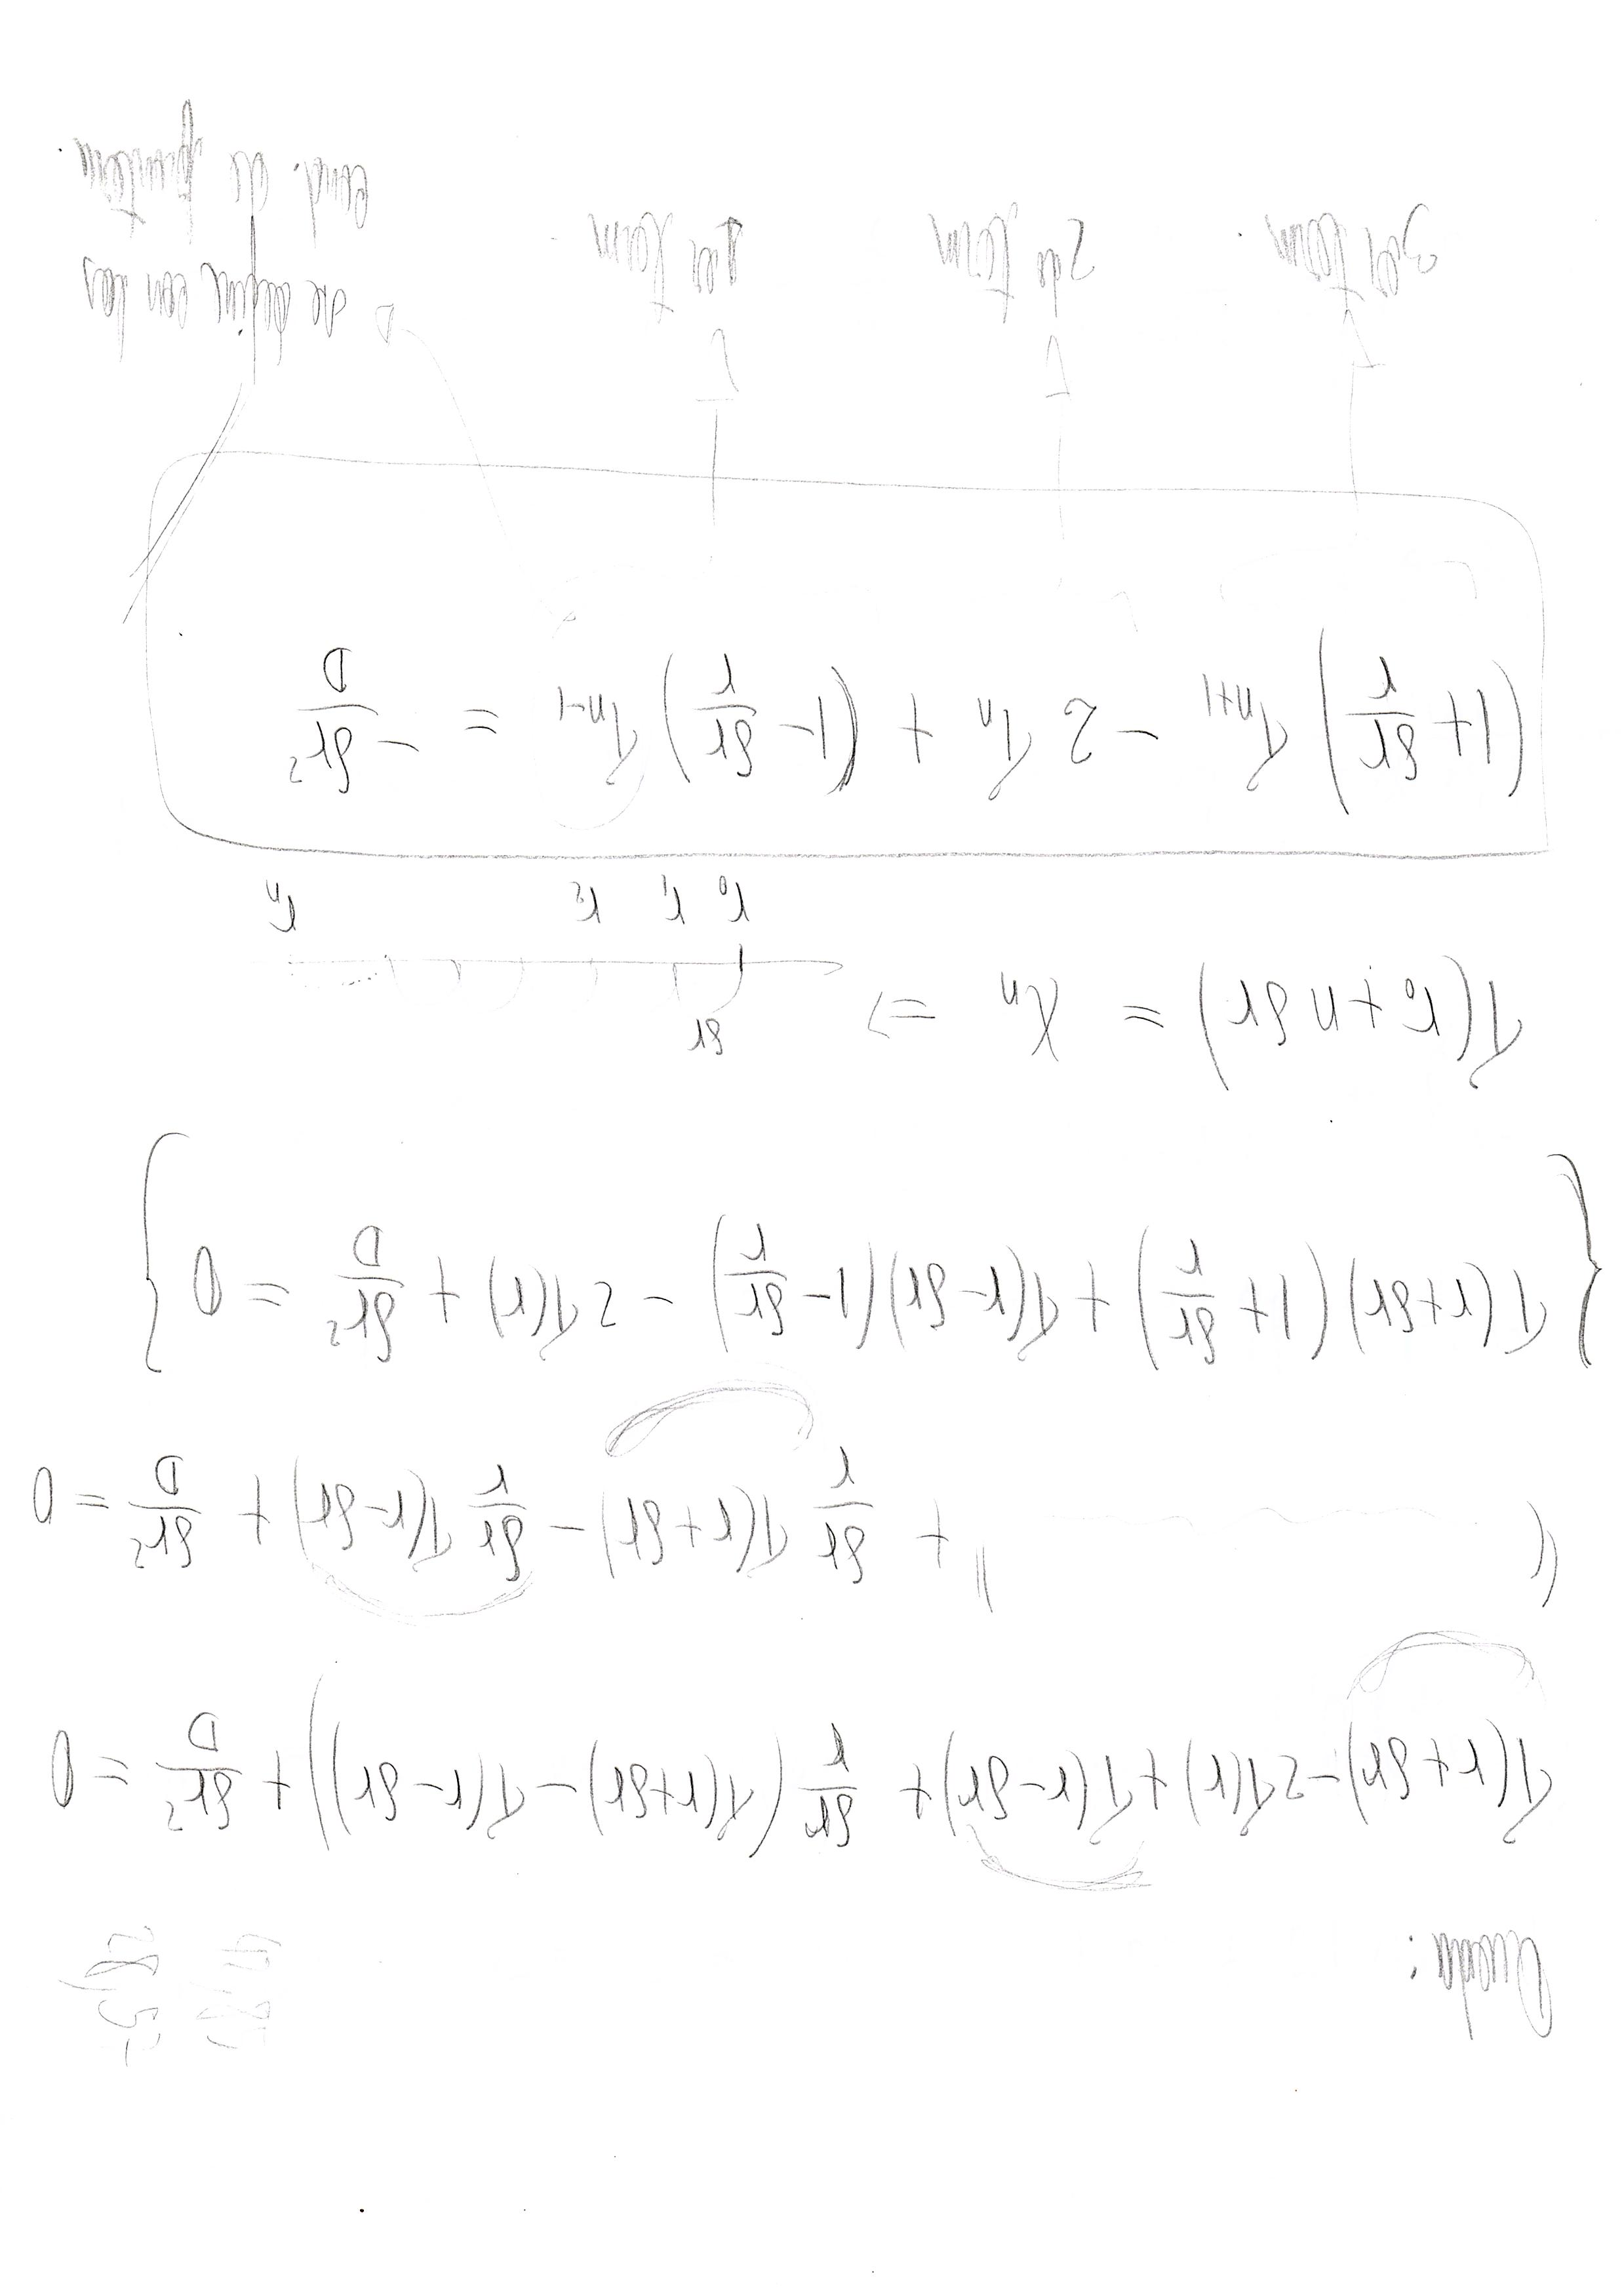 Queda:
T(r+δr) - 2T(r) + T(r-δr) + δr/r (T(r+δr) - T(r-δr)) + δr²/D = 0
" " + δr/r T(r+δr) - δr/r T(r-δr) + δr²/D = 0
{ T(r+δr)(1+δr/r) + T(r-δr)(1-δr/r) - 2T(r) + δr²/D = 0 }
T(r₀+nδr) = Xₙ =>
δr
r₀ r₁ r₂ rₙ
(1+δr/r) Tₙ₊₁ - 2 Tₙ + (1-δr/r) Tₙ₋₁ = -δr²/D
3er term. 2do term 1er term.
se define con las
cond. de frontera.